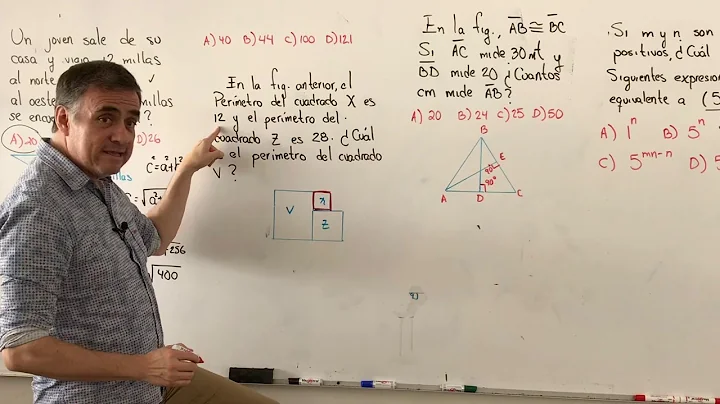 Un joven sale de su
casa y viaja 12 millas
al norte
al oeste millas
se enco ?
A) 20 D) 26
millas
c²=a²+b²
=√a²+
+256
√400
A) 40 B) 44 C) 100 D) 121
En la fig. anterior, el
Perímetro del cuadrado X es
12 y el perímetro del
cuadrado Z es 28. ¿Cuál
el perímetro del cuadrado
V ?
V
x
Z
En la fig., AB≅BC
Si AC mide 30 mt y
BD mide 20 ¿Cuantos
cm mide AB?
A) 20 B) 24 C) 25 D) 50
B
E
90°
90°
A
D
C
Si m y n son
positivos, ¿Cuál
Siguientes expresion
equivalente a (5
A) 1ⁿ B) 5ⁿ
C) 5ᵐⁿ⁻ⁿ D) 5